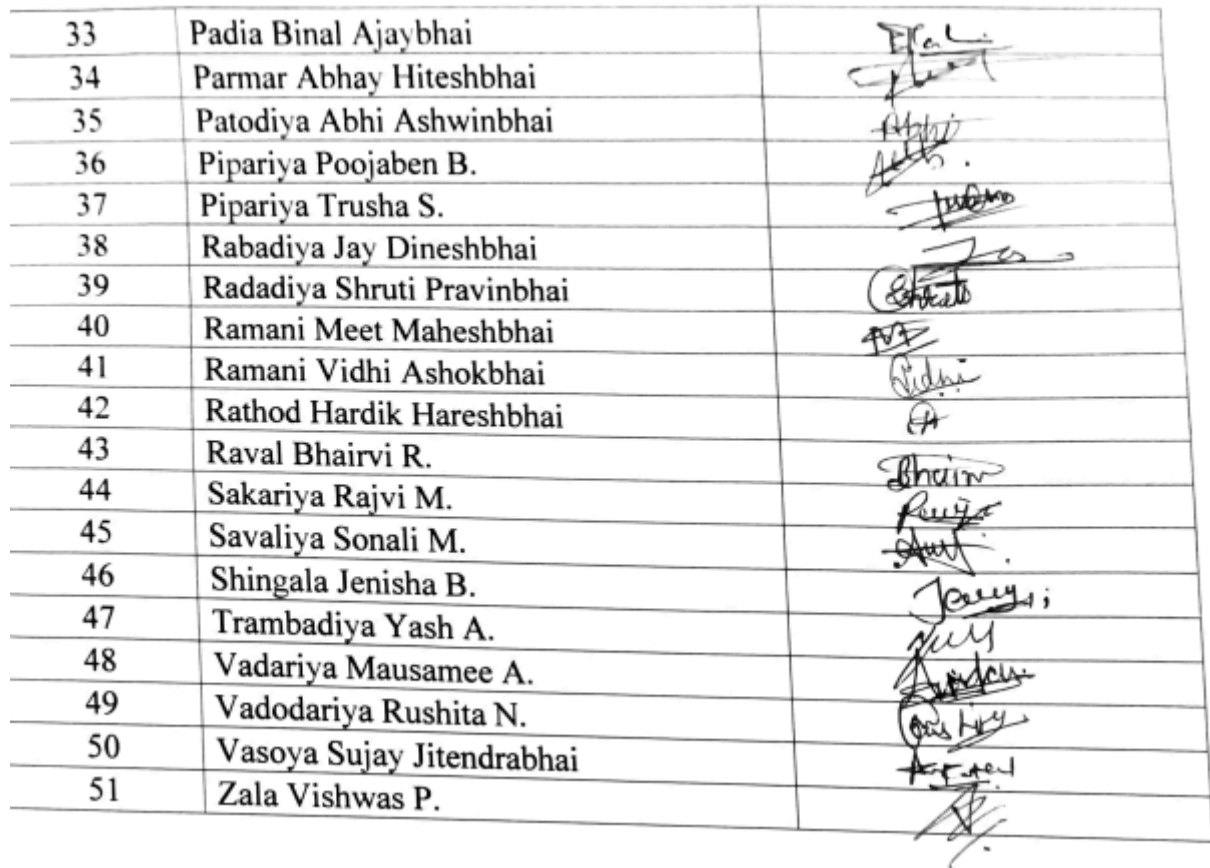 33 Padia Binal Ajaybhai
34 Parmar Abhay Hiteshbhai
35 Patodiya Abhi Ashwinbhai Abhi
36 Pipariya Poojaben B.
37 Pipariya Trusha S.
38 Rabadiya Jay Dineshbhai
39 Radadiya Shruti Pravinbhai
40 Ramani Meet Maheshbhai
41 Ramani Vidhi Ashokbhai Vidhi
42 Rathod Hardik Hareshbhai
43 Raval Bhairvi R.
44 Sakariya Rajvi M.
45 Savaliya Sonali M.
46 Shingala Jenisha B.
47 Trambadiya Yash A.
48 Vadariya Mausamee A.
49 Vadodariya Rushita N.
50 Vasoya Sujay Jitendrabhai
51 Zala Vishwas P.